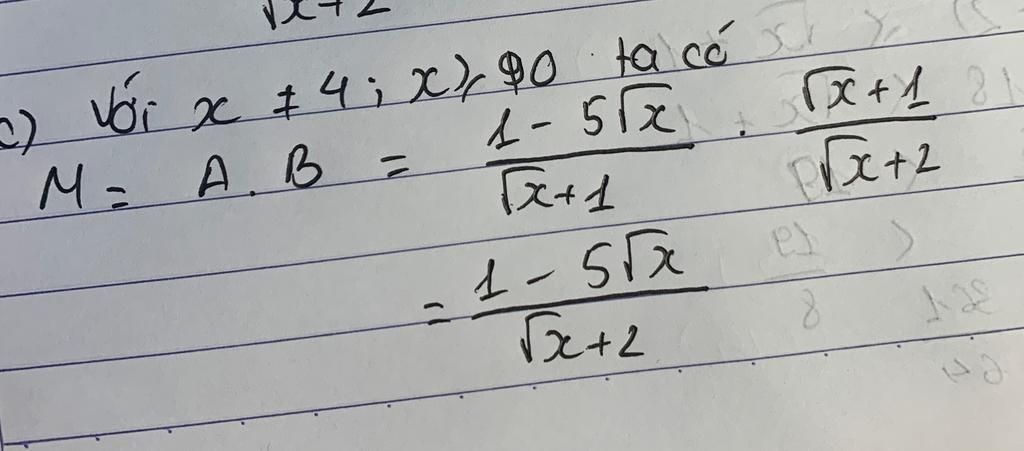 √x+2
c) Với x ≠ 4 ; x ≥ 0 ta có
M = A . B = (1 - 5√x)/(√x+1) . (√x+1)/(√x+2)
= (1 - 5√x)/(√x+2)